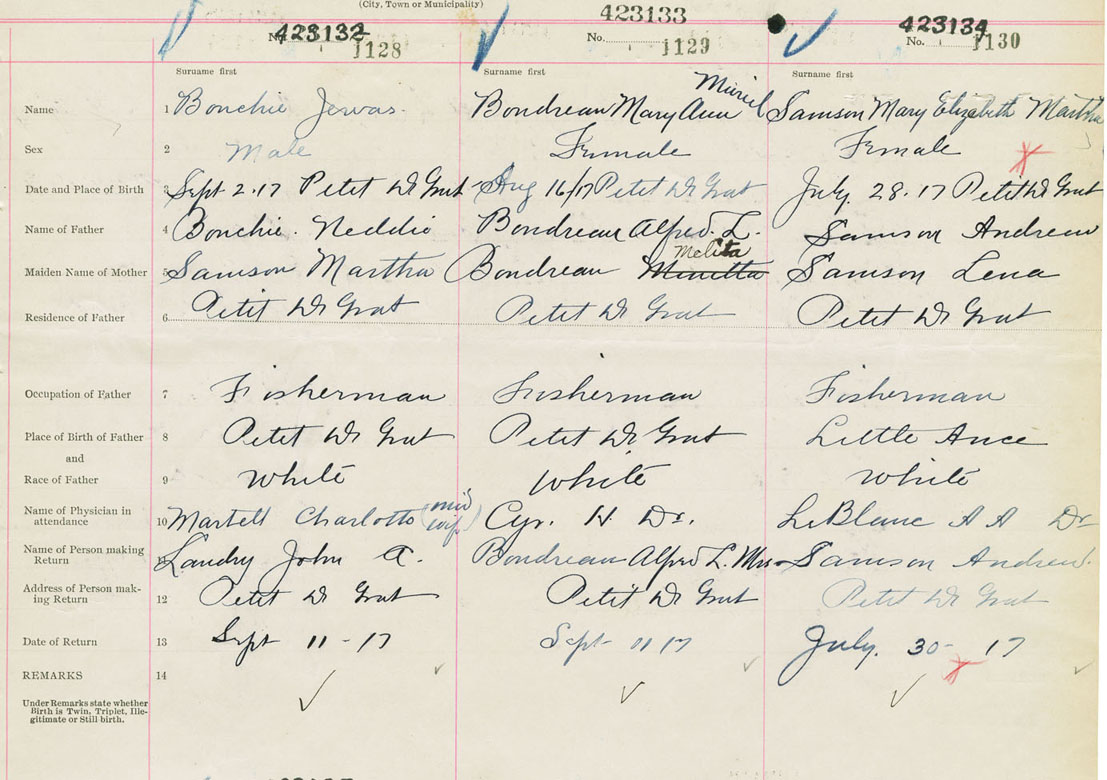 (City, Town or Municipality)
423132 423133 423134
No. 1128 No. 1129 No. 1130
Surname first Surname first Surname first
Muriel
Name 1 Bonchie Jervas. Bondreau Mary Ann Samson Mary Elizabeth Martha
Sex 2 Male Female Female
Date and Place of Birth 3 Sept 2.17 Petit De Grat Aug 16/17 Petit De Grat July 28.17 Petit De Grat
Name of Father 4 Bonchie. Neddie Bondreau Alfred. L. Samson Andrew
Melita
Maiden Name of Mother 5 Samson Martha Bondreau Minetta Samson Lena
Residence of Father 6 Petit De Grat Petit De Grat Petit De Grat
Occupation of Father 7 Fisherman Fisherman Fisherman
Place of Birth of Father 8 Petit De Grat Petit De Grat Little Ance
and
Race of Father 9 White White White
Name of Physician in
attendance 10 Martell Charlotte (mid wife) Cyr. H. Dr. LeBlanc A A Dr
Name of Person making
Return 11 Landry John A. Bondreau Alfred L. Mrs Samson Andrew.
Address of Person mak-
ing Return 12 Petit De Grat Petit De Grat Petit De Grat
Date of Return 13 Sept 11-17 Sept 11 17 July. 30-17
REMARKS 14
Under Remarks state whether
Birth is Twin, Triplet, Ille-
gitimate or Still-birth.